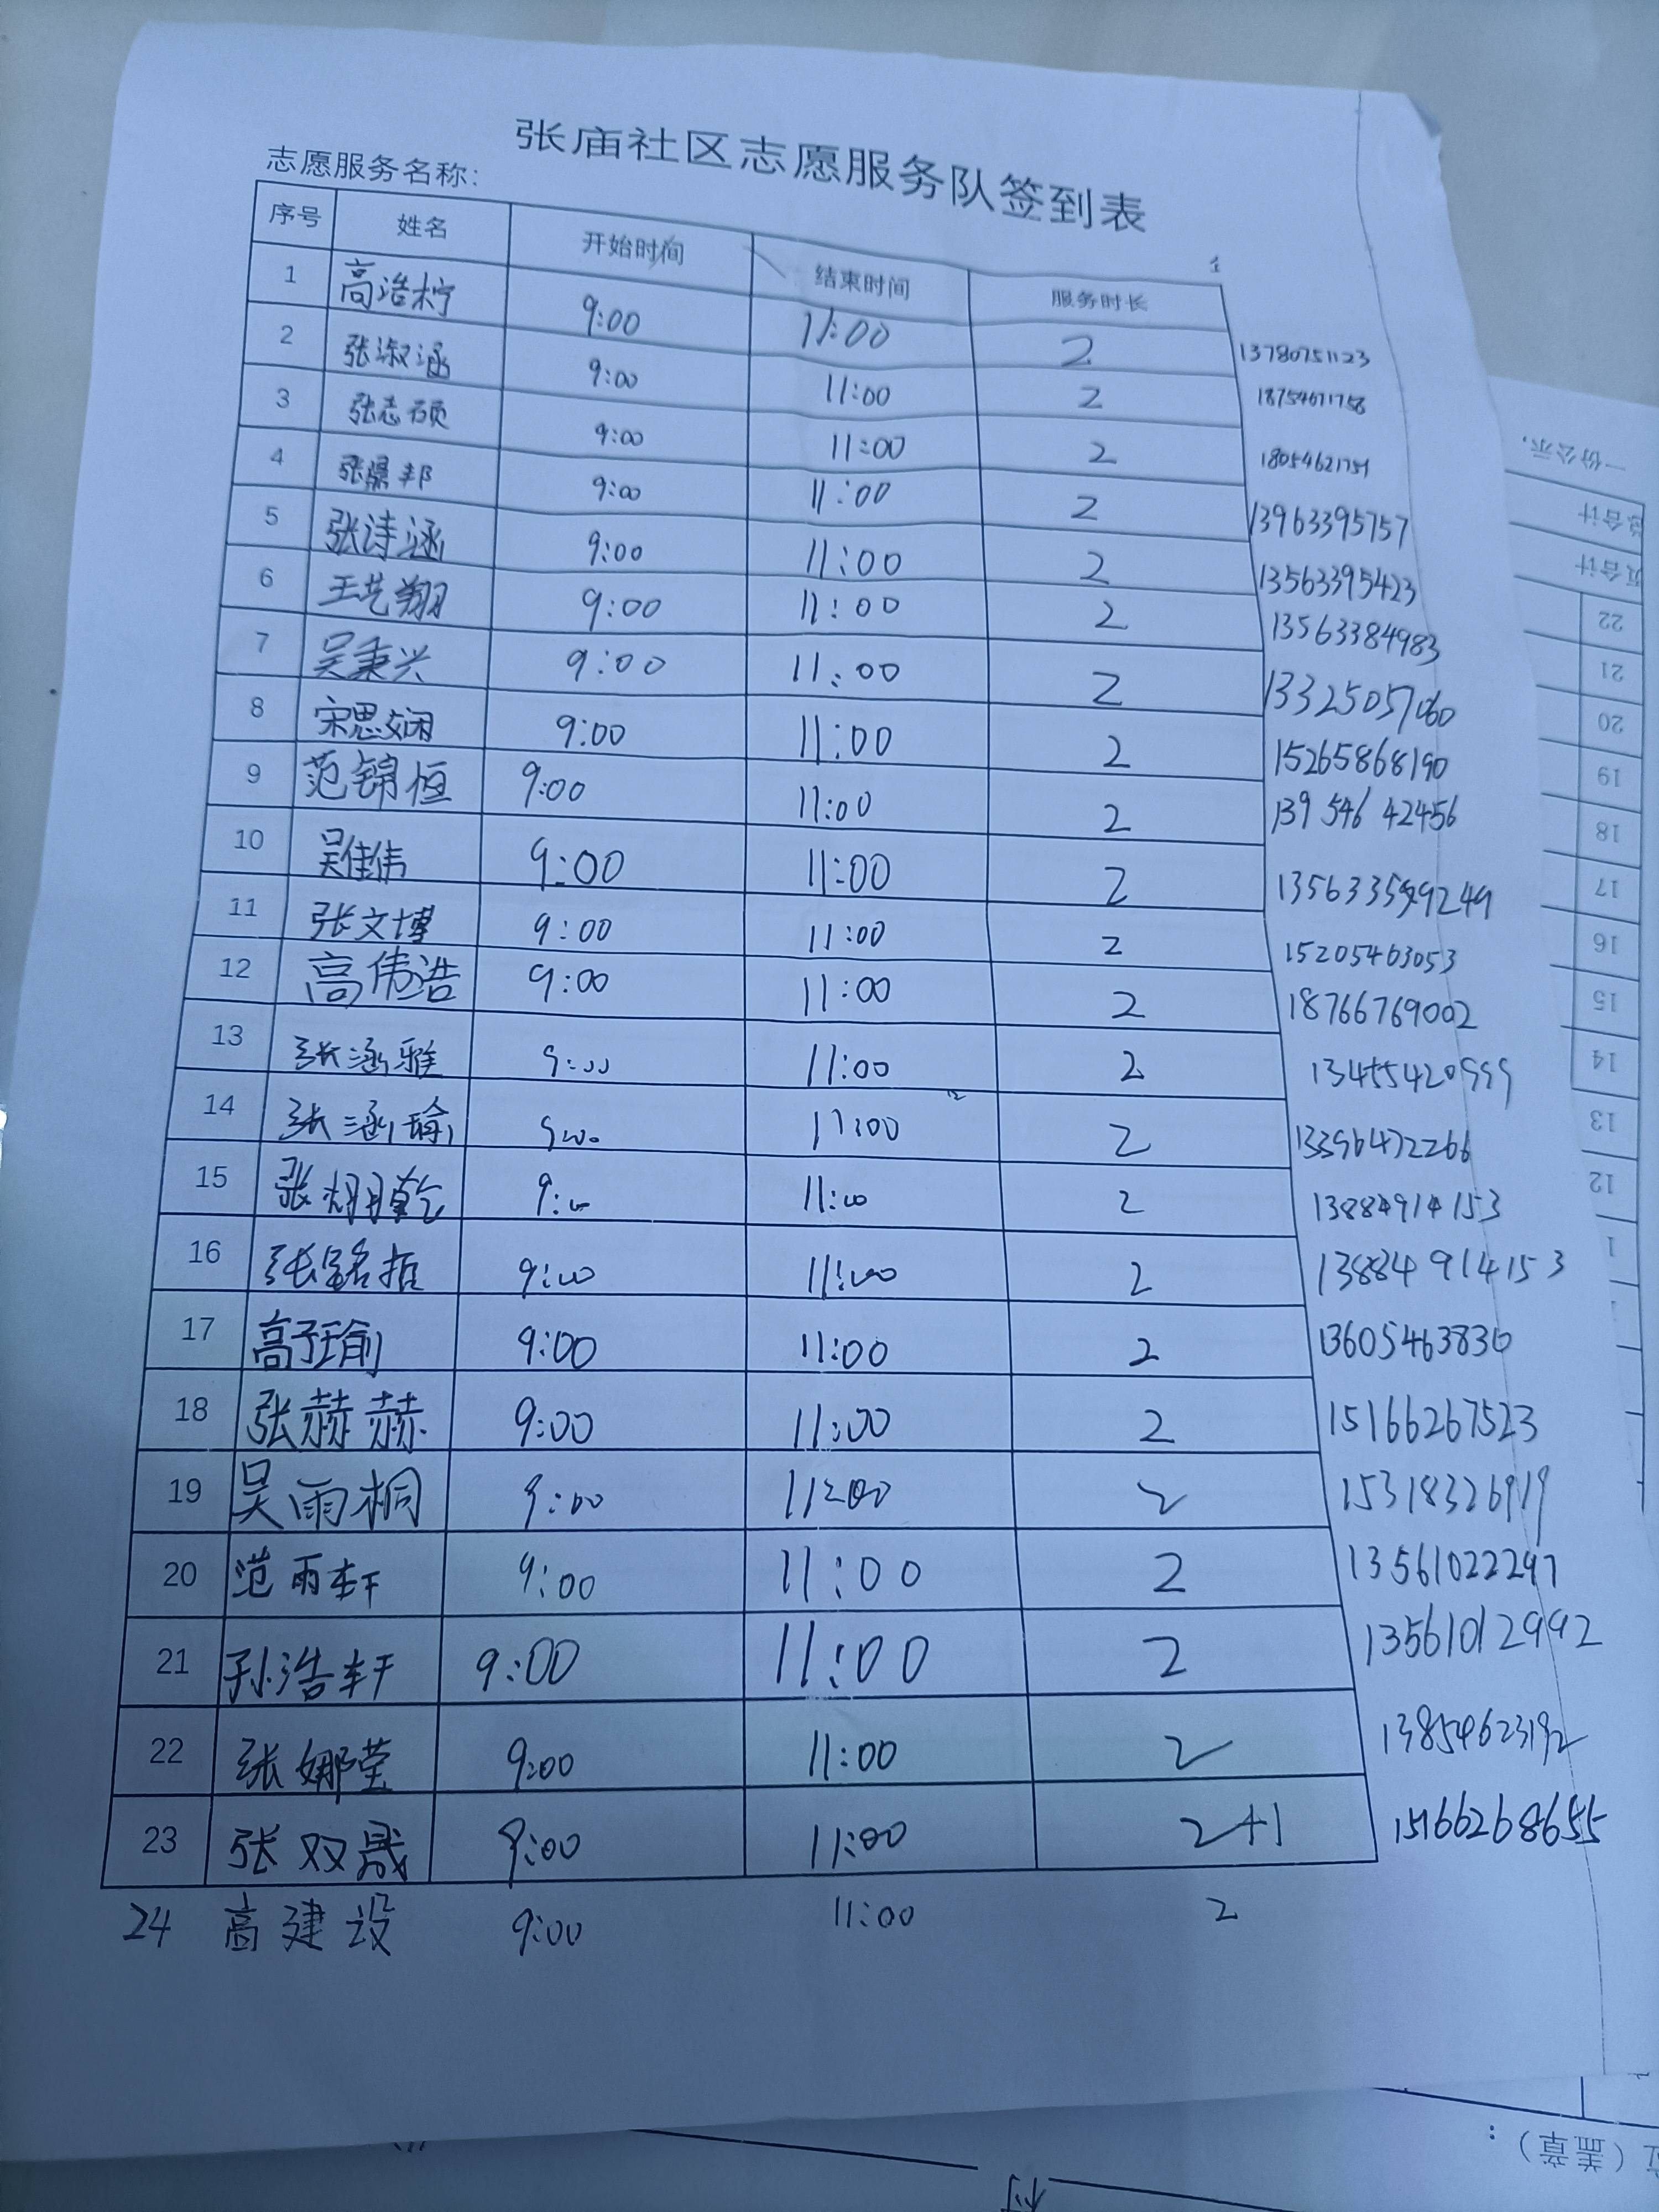 张庙社区志愿服务队签到表
志愿服务名称：
序号 姓名 开始时间 结束时间 服务时长
1 高浩柠 9:00 11:00 2 13780751123
2 张淑涵 9:00 11:00 2 18754671758
3 张志硕 9:00 11:00 2
4 张 邦 9:00 11:00 2 13963395757
5 张诗涵 9:00 11:00 2 13563395423
6 王艺翔 9:00 11:00 2 13563384983
7 吴秉兴 9:00 11:00 2 13325057060
8 宋思娴 9:00 11:00 2 15265868190
9 范锦恒 9:00 11:00 2 139 546 42456
10 吴佳伟 9:00 11:00 2
11 张文博 9:00 11:00 2 15205463053
12 高伟浩 9:00 11:00 2 18766769002
13 张涵雅 9:00 11:00 2 13455420999
14 张涵瑜 9:00 11:00 2 13396472266
15 张 乾 9:00 11:00 2 13884914153
16 张铭哲 9:00 11:00 2 13884914153
17 高子瑜 9:00 11:00 2 13605463830
18 张赫赫 9:00 11:00 2 15166267523
19 吴雨桐 9:00 11:00 2 15318326919
20 范雨轩 9:00 11:00 2 13561022297
21 孙浩轩 9:00 11:00 2 13561012992
22 张娜莹 9:00 11:00 2 13854623192
23 张双晟 9:00 11:00 2+1 15166268655
24 高建设 9:00 11:00 2
一份公示，
总合计
页合计
22
21
20
19
18
17
16
15
14
13
12
（盖章）：